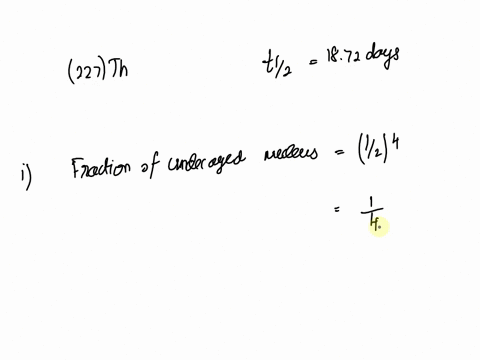 (227)Th t1/2 = 18.72 days
i) Fraction of undecayed nucleus = (1/2)^4
= 1/4